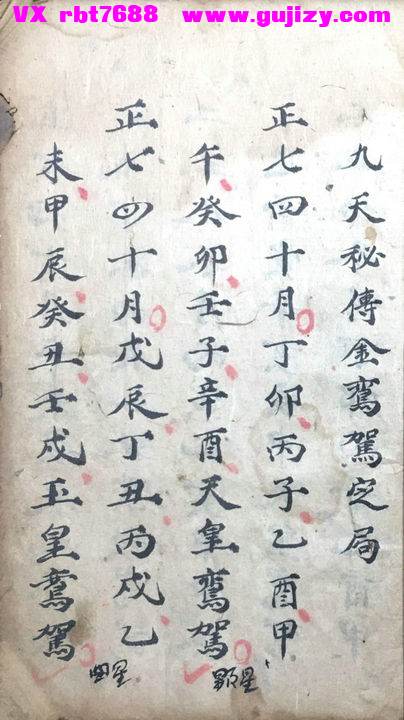 VX rbt7688 www.gujizy.com
九天秘傳金鸞駕定局
正七四十月丁卯丙子乙酉甲
午癸卯壬子辛酉天皇鸞駕
正七四十月戊辰丁丑丙戌乙
未甲辰癸丑壬戌玉皇鸞駕